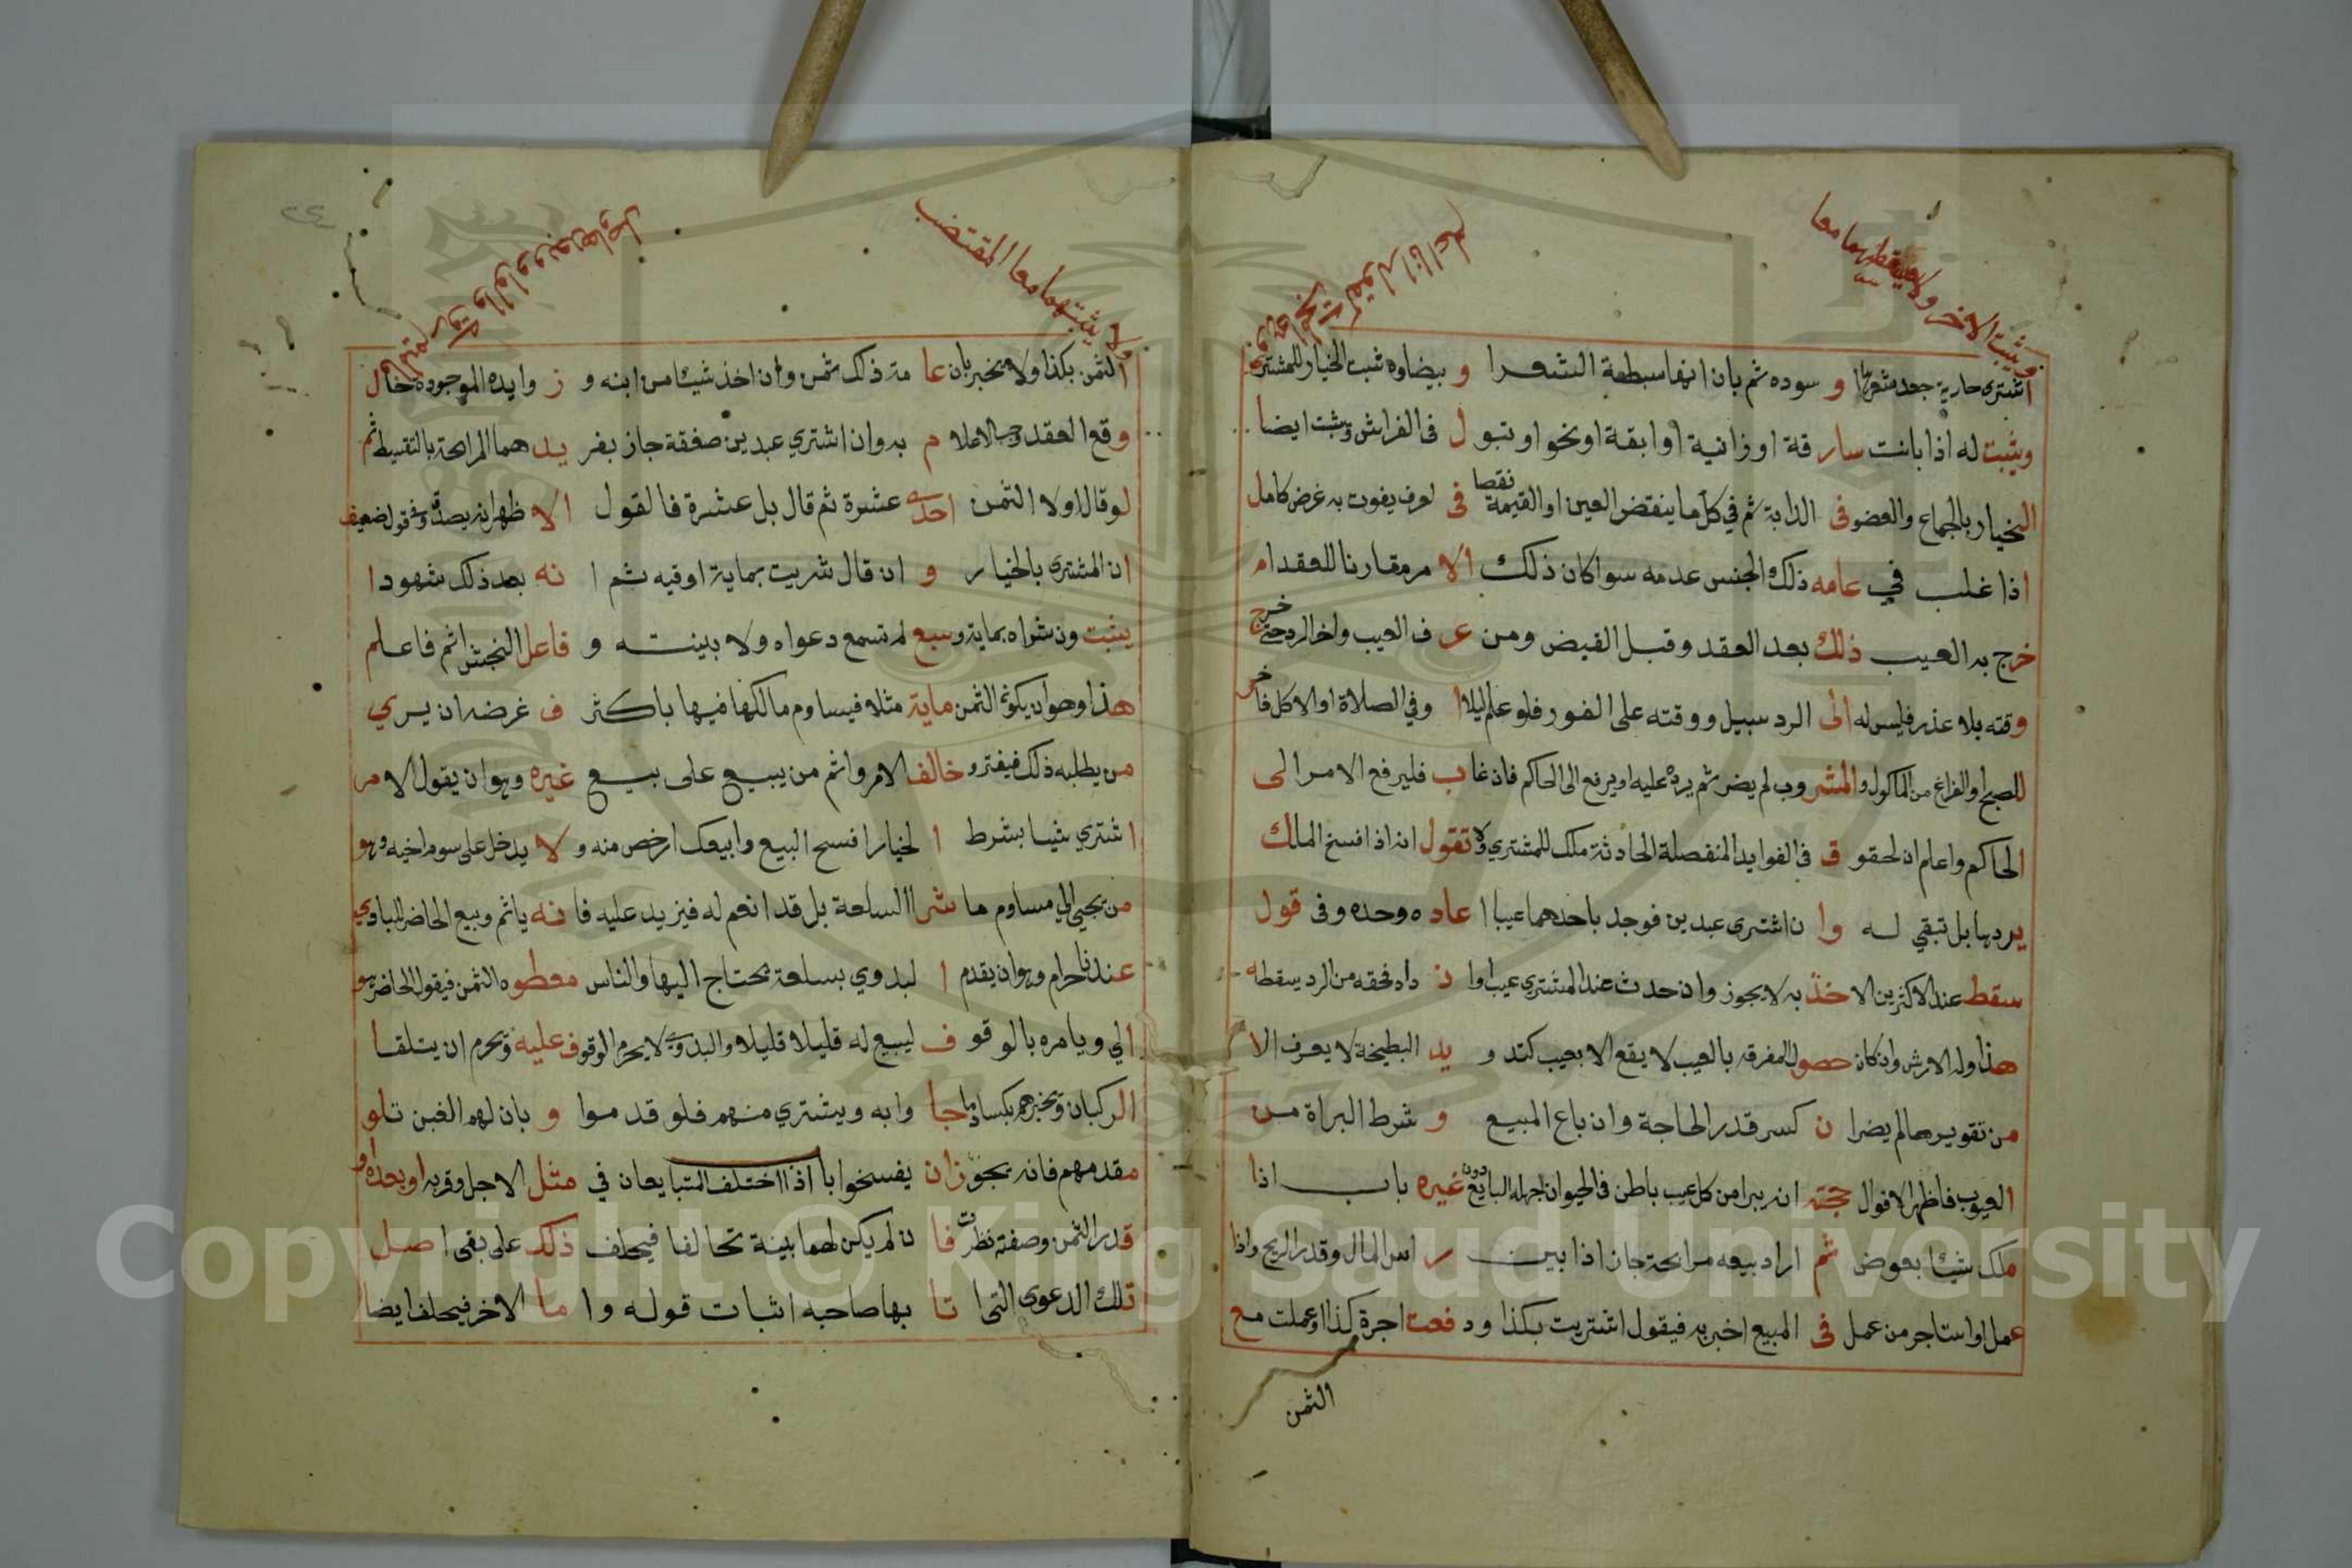 ويثبت الاخر ولا يسقطهما معا
كقولك انا اعلم
اشترى جارية جعد شعرها و سوده ثم بان انها سبطة الشعرا و بيضاوه ثبت الخيار للمشتري
ويثبت له اذا بانت سار قة او زانية او ابقة او نحو او تبو ل فى الفراش ويثبت ايضا
الخيار بالجماع والعضو فى الدابة ثم في كل ما ينقض العين او القيمة نقصا فى لعرف يفوت به غرض كامل
اذا غلب في عامه ذلك الجنس عدمه سوا كان ذلك الا مر مقارنا للعقد ام
خرج به العيب ذلك بعد العقد وقبل القبض ومن عر ف العيب واخر الرد حتى خرج
وقته بلا عذر فليس له الى الرد سبيل ووقته على الفور فلو علم ليلا ا وفي الصلاة او الاكل فاخر
للصبح او الفراغ من الماكول و المشر وب لم يضر ثم يرده عليه او يرفع الى الحاكم فان غا ب فليرفع الامر الى
الحاكم واعلم ان لحقو ق فى الفوايد المنفصلة الحادثة ملك للمشتري لا تقول انه اذا افسخ المالك
يردها بل تبقي له وا ن اشترى عبدين فوجد باحدهما عيبا ا عاد ه وحده وفى قول
سقط عند الاكثرين الا خذ به لا يجوز وان حدث عند المشتري عيب وا ن داد فحقه من الرد يسقطه
هذا وله الارش وان كان حصو ل المفرقه بالعيب لا يقع الا بعيب كتد و يد البطيخة لا يعرف الا
من تقويرها لم يضر ا ن كسر قدر الحاجة وان باع المبيع و شرط البراة من
العيوب فاظهر الاقوال حجته انه يبرا من كل عيب باطن فى الحيوان جهله البايع دون غيره باب اذا
ملك شيئا بعوض ثم اراد بيعه مرابحة جاز اذا بين ر اس المال وقدر الربح واذا
عمل او استاجر من عمل فى المبيع اخبر به فيقول اشتريت بكذا ود فعت اجرة كذا او عملت مع
الثمن
ولا يثبتهما معا المقتضب
الثمن بكذا ولا يخبر بان عا مة ذلك ثمن وان اخذ شيئا من ابنه و ز وايده الموجودة حال
وقع العقد وجب الاعلا م به وان اشتري عبدين صفقة جاز بفر يد هما المرابحة بالتقسيط ثم
لو قال اولا الثمن احدى عشرة ثم قال بل عشرة فالقول الا ظهر انه يصدق وفى قول ضعيف
ان المشتري بالخيار و ان قال شريت بماية اوقيه ثم ا نه بعد ذلك شهودا
يثبت ون شراه بماية و سبع لم تسمع دعواه ولا بينته و فاعل النجش اثم فاعلم
هذا وهو ان يكون الثمن ماية مثلا فيساوم مالكها فيها باكثر ف غرضه ان يري
من يطلبه ذلك فيغتر و خالف الامر واثم من يبيع على بيع غيره وهو ان يقول لا مر
اشتري شيا بشرط ا لخيار افسح البيع وابيعك ارخص منه و لا يدخل على سوم اخيه وهو
من يجيى الي مساوم ما شر ا السلعة بل قد انعم له فيزيد عليه فا نه ياثم وبيع الحاضر للبادي
عندنا حرام وهو ان يقدم ا لبدوي بسلعة يحتاج اليها والناس معطوه الثمن فيقول الحاضر هو
الي ويامره بالوقو ف ليبيع له قليلا قليلا والبدوي لا يحرم الوقوف عليه ويحرم ان يتلقا
الركبان ويخبرهم بكساد ما جا وا به ويشتري منهم فلو قدموا و بان لهم الغبن تلو
مقدمهم فانه يجو زان يفسخوا باب اذا اختلف المتبايعان في مثل الاجل وقربه او بعده او
قدر الثمن وصفته نظرت فا ن لم يكن لهما بينة تحالفا فيحلف ذلك على بقى اصل
تلك الدعوى التي ا تا بها صاحبه اثبات قوله وا ما الاخر فيحلف ايضا